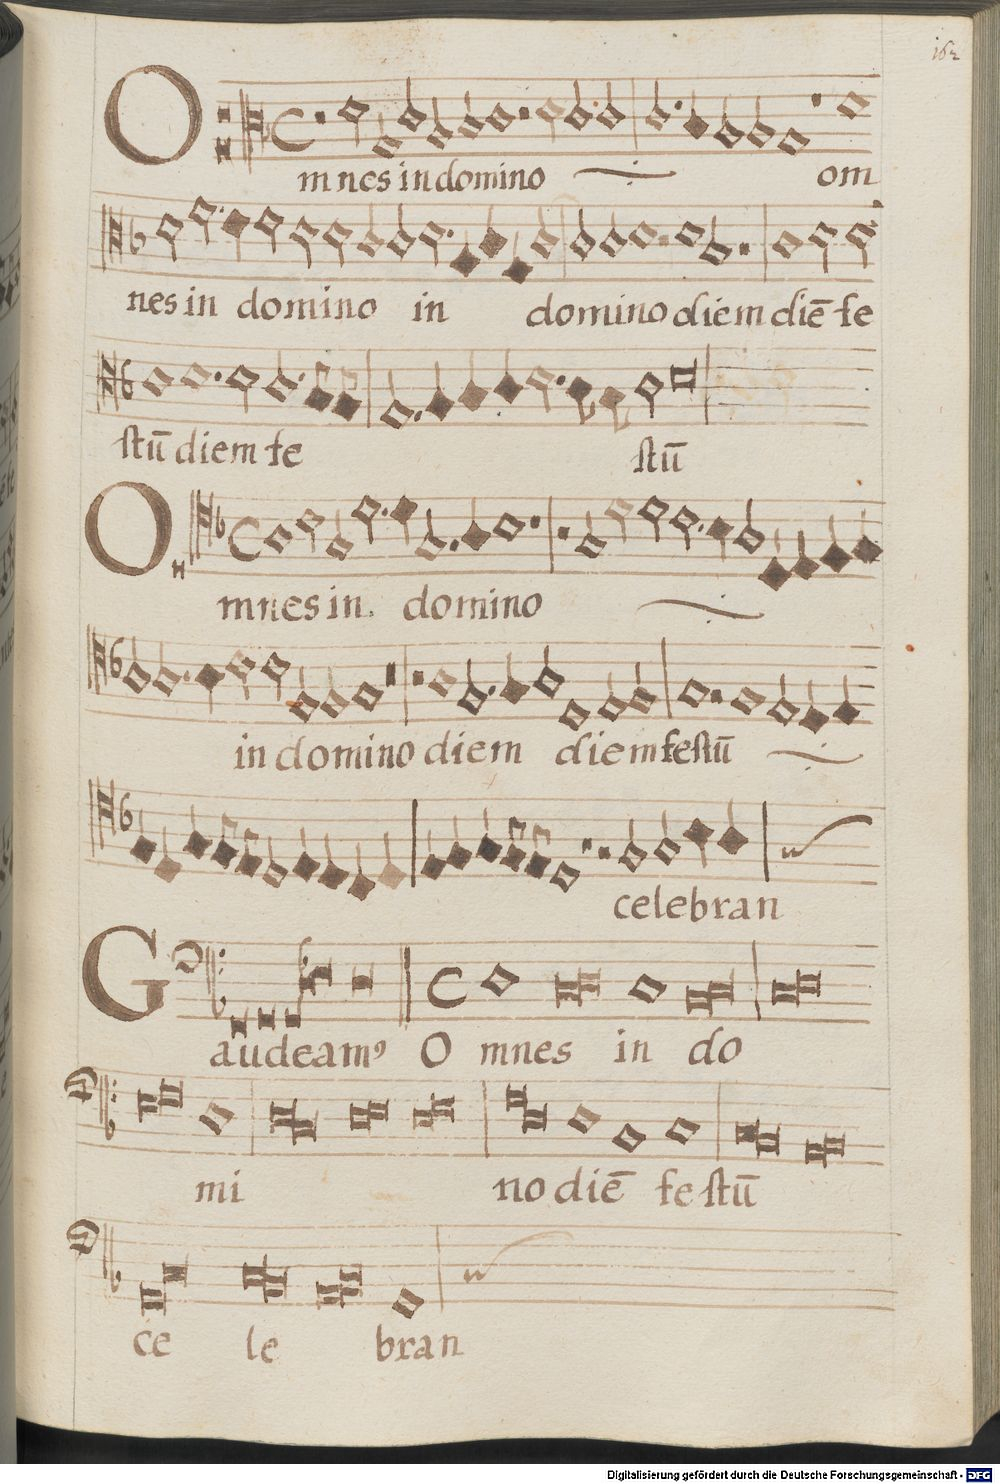 162
O
mnes in domino om
nes in domino in domino diem diē fe
stū diem fe stū
O
mnes in domino
in domino diem diem festū
celebran
G
audeamꝰ O mnes in do
mi no diē festū
ce le bran
Digitalisierung gefördert durch die Deutsche Forschungsgemeinschaft - DFG